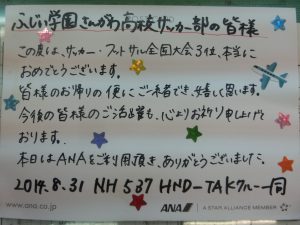 ふじい学園さんがわ高校サッカー部の皆様
この度は、サッカー・フットサル全国大会3位、本当に
おめでとうございます。
皆様のお帰りの便にご一緒でき、嬉しく思います。
今後の皆様のご活躍も、心よりお祈り申し上げて
おります。
本日はANAをご利用頂き、ありがとうございました。
2014.8.31 NH 537 HND-TAKクルー一同
www.ana.co.jp
ANA
A STAR ALLIANCE MEMBER